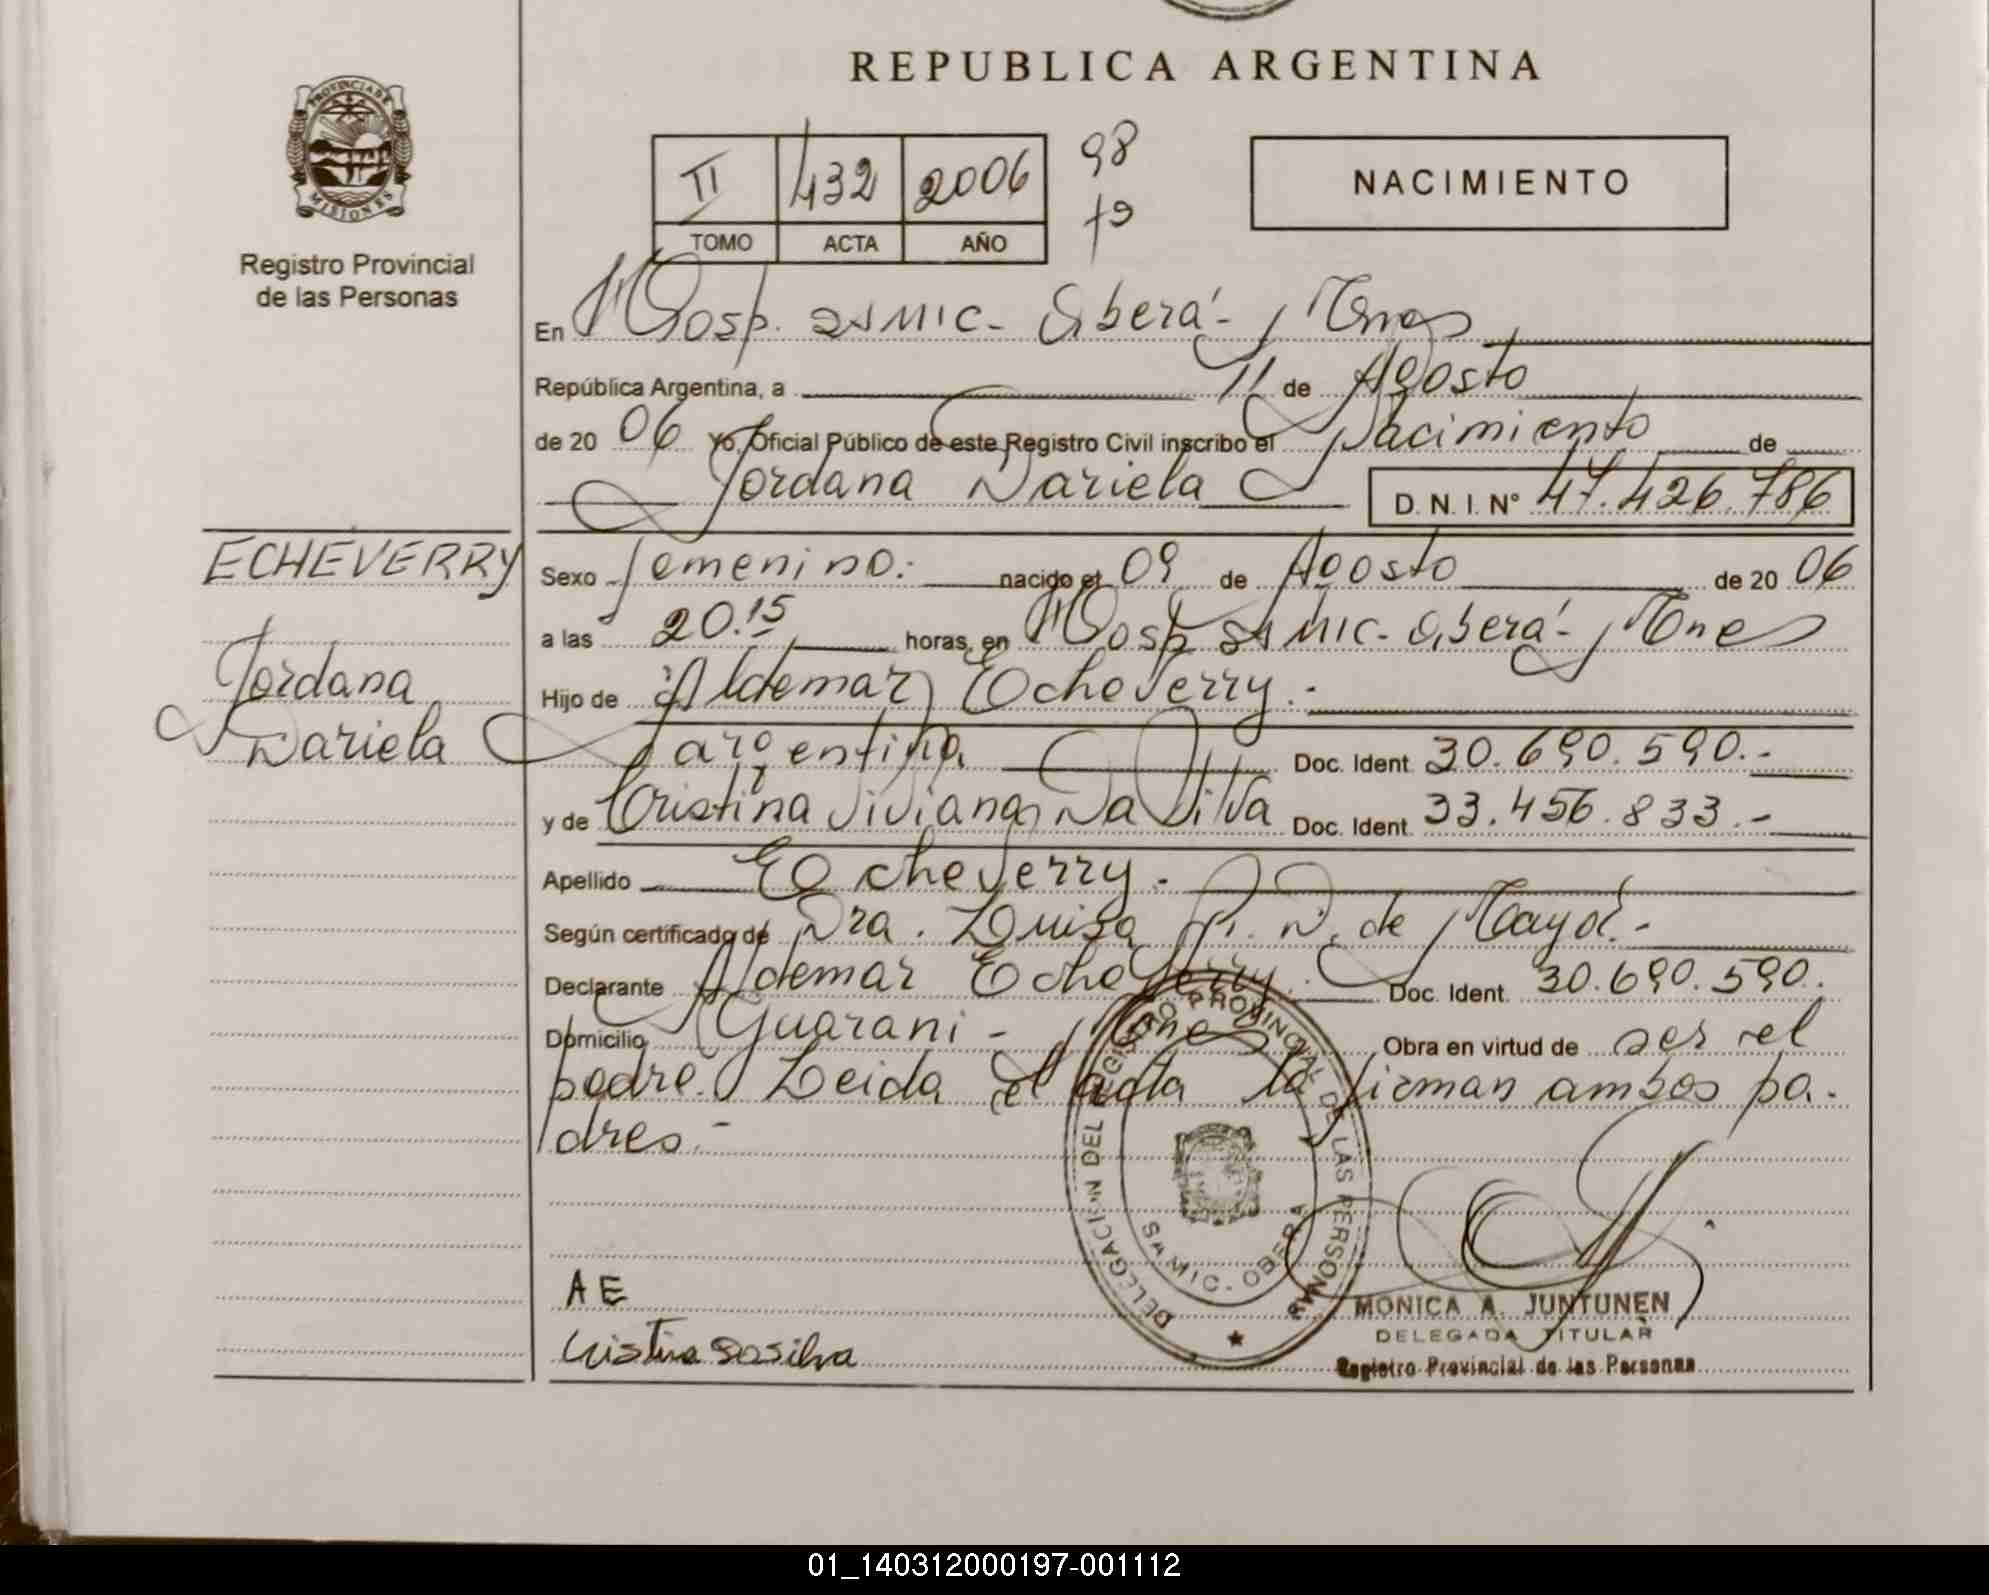 REPUBLICA ARGENTINA
PROVINCIA DE MISIONES
Registro Provincial
de las Personas
II 432 2006 98
TOMO ACTA AÑO
NACIMIENTO
En Hosp. SAMIC- Oberá- Mnes
República Argentina, a 11 de Agosto
de 2006 Yo, Oficial Público de este Registro Civil inscribo el Nacimiento de
Jordana Dariela D. N. I. Nº 47.426.786
ECHEVERRY
Jordana
Dariela
Sexo femenino. nacido el 09 de Agosto de 2006
a las 20.15 horas, en Hosp SAMIC- Oberá- Mnes
Hijo de Aldemar Echeverry.-
argentina Doc. Ident. 30.690.590.-
y de Cristina Viviana Da Silva Doc. Ident. 33.456.833.-
Apellido Echeverry.
Según certificado de Dra. Luisa N. de Mayol.-
Declarante Aldemar Echeverry. Doc. Ident. 30.690.590.
Domicilio Guarani - Mnes Obra en virtud de ser el
padre. Leida el acta la firman ambos pa-
dres.-
DELEGACION DEL REGISTRO PROVINCIAL DE LAS PERSONAS
SAMIC - OBERA
A E
Cristina Dasilva
MONICA A. JUNTUNEN
DELEGADA TITULAR
Registro Provincial de las Personas
01_140312000197-001112